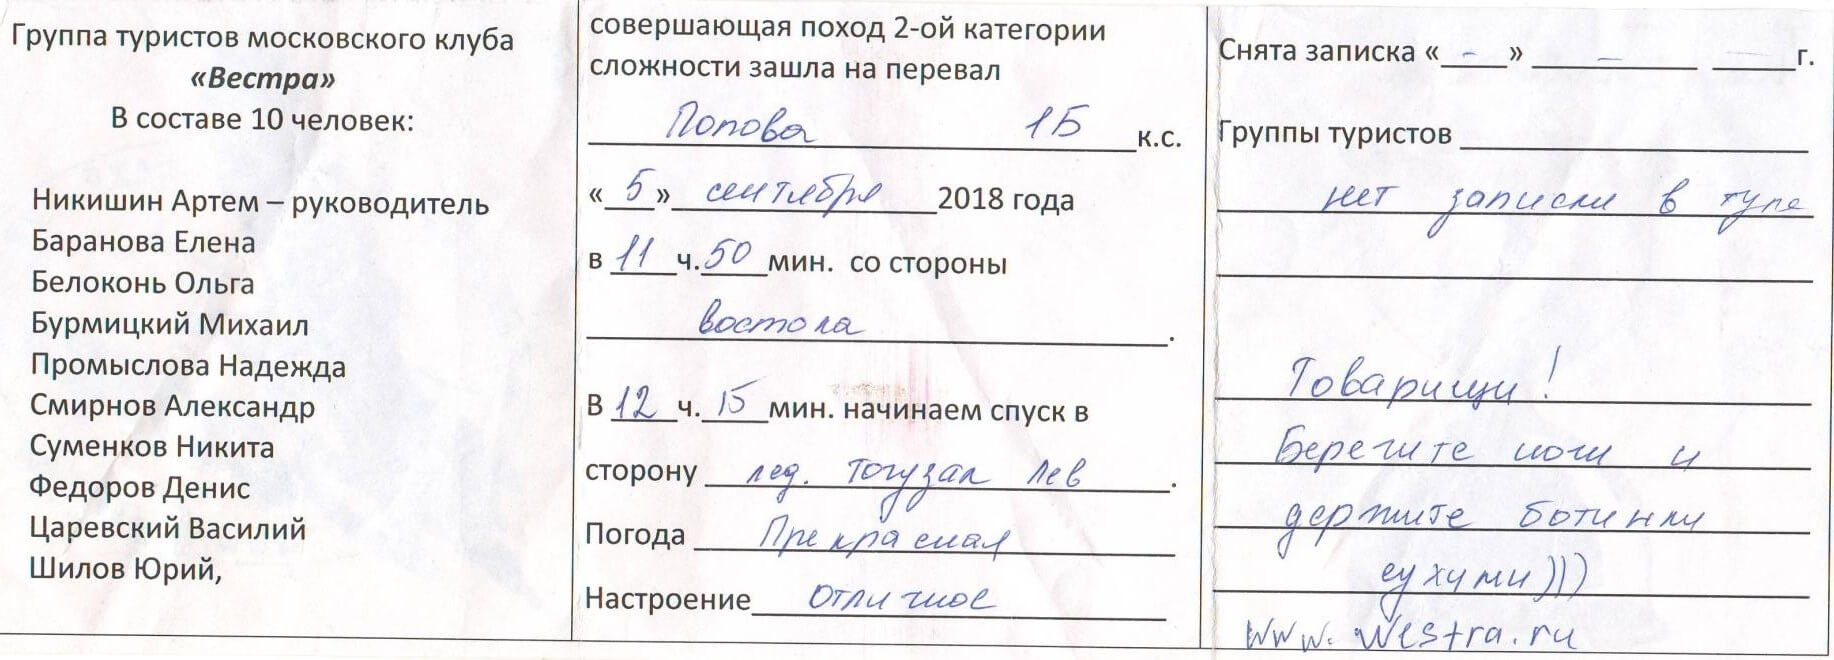 Группа туристов московского клуба
«Вестра»
В составе 10 человек:
Никишин Артем – руководитель
Баранова Елена
Белоконь Ольга
Бурмицкий Михаил
Промыслова Надежда
Смирнов Александр
Суменков Никита
Федоров Денис
Царевский Василий
Шилов Юрий,
совершающая поход 2-ой категории
сложности зашла на перевал
Попова 1Б к.с.
«5» сентября 2018 года
в 11 ч. 50 мин. со стороны
востока.
В 12 ч. 15 мин. начинаем спуск в
сторону лед. Тогузак Лев.
Погода Прекрасная
Настроение отличное
Снята записка « - » – — г.
Группы туристов
нет записки в туре
Товарищи!
Берегите ноги и
держите ботинки
сухими)))
www.westra.ru